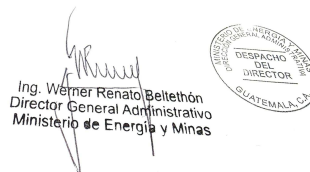 Ing. Werner Renato Beltethón
Director General Administrativo
Ministerio de Energía y Minas
MINISTERIO DE ENERGIA Y MINAS
DIRECCION GENERAL ADMINISTRATIVA
DESPACHO
DEL
DIRECTOR
GUATEMALA, C.A.